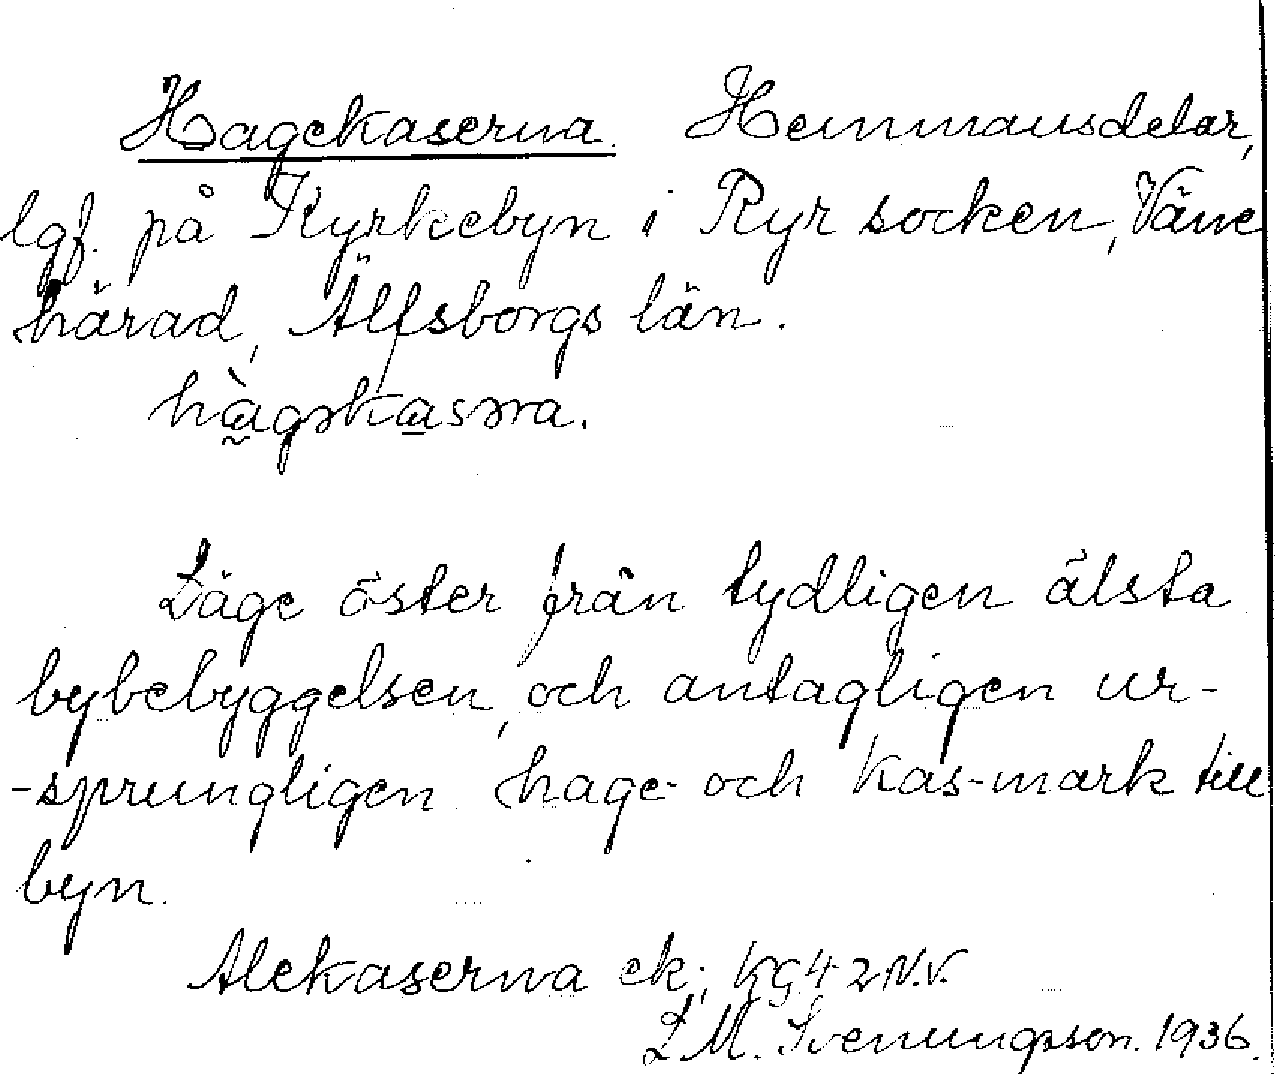 Hagekaserna. Hemmansdelar,
lgf. på Kyrkebyn i Ryr socken, Väne
härad, Älfsborgs län.
hàgəkasəra.
Läge öster från tydligen älsta
bybebyggelsen, och antagligen ur-
-sprungligen hage- och kas-mark till
byn.
Alekaserna ek; KG 4 2 N.V.
L.M. Svenungsson. 1936.